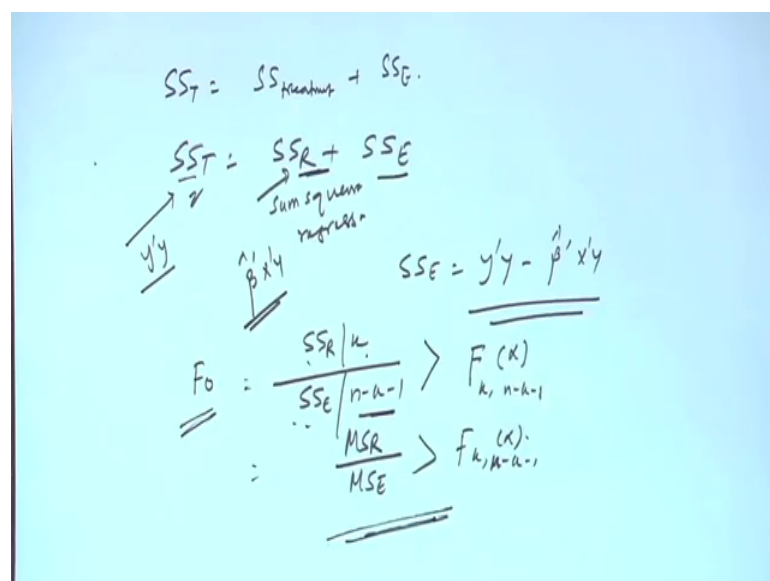 SS_T = SS_treatment + SS_E.
SS_T = SS_R + SS_E
sum square
regress.
y'y
β̂'x'y
SS_E = y'y - β̂'x'y
F_0 = SS_R/k / SS_E/n-k-1 > F_k, n-k-1 (α)
= MSR / MSE > F_k, n-k-1 (α).